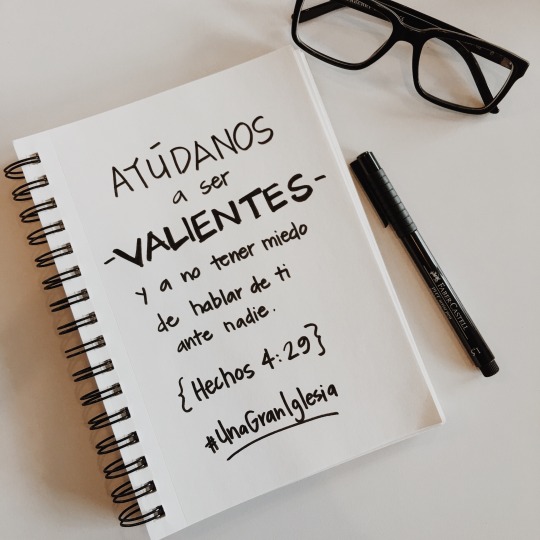 AYÚDANOS
a ser
-VALIENTES-
y a no tener miedo
de hablar de ti
ante nadie.
{Hechos 4:29}
#UnaGranIglesia
FABER-CASTELL